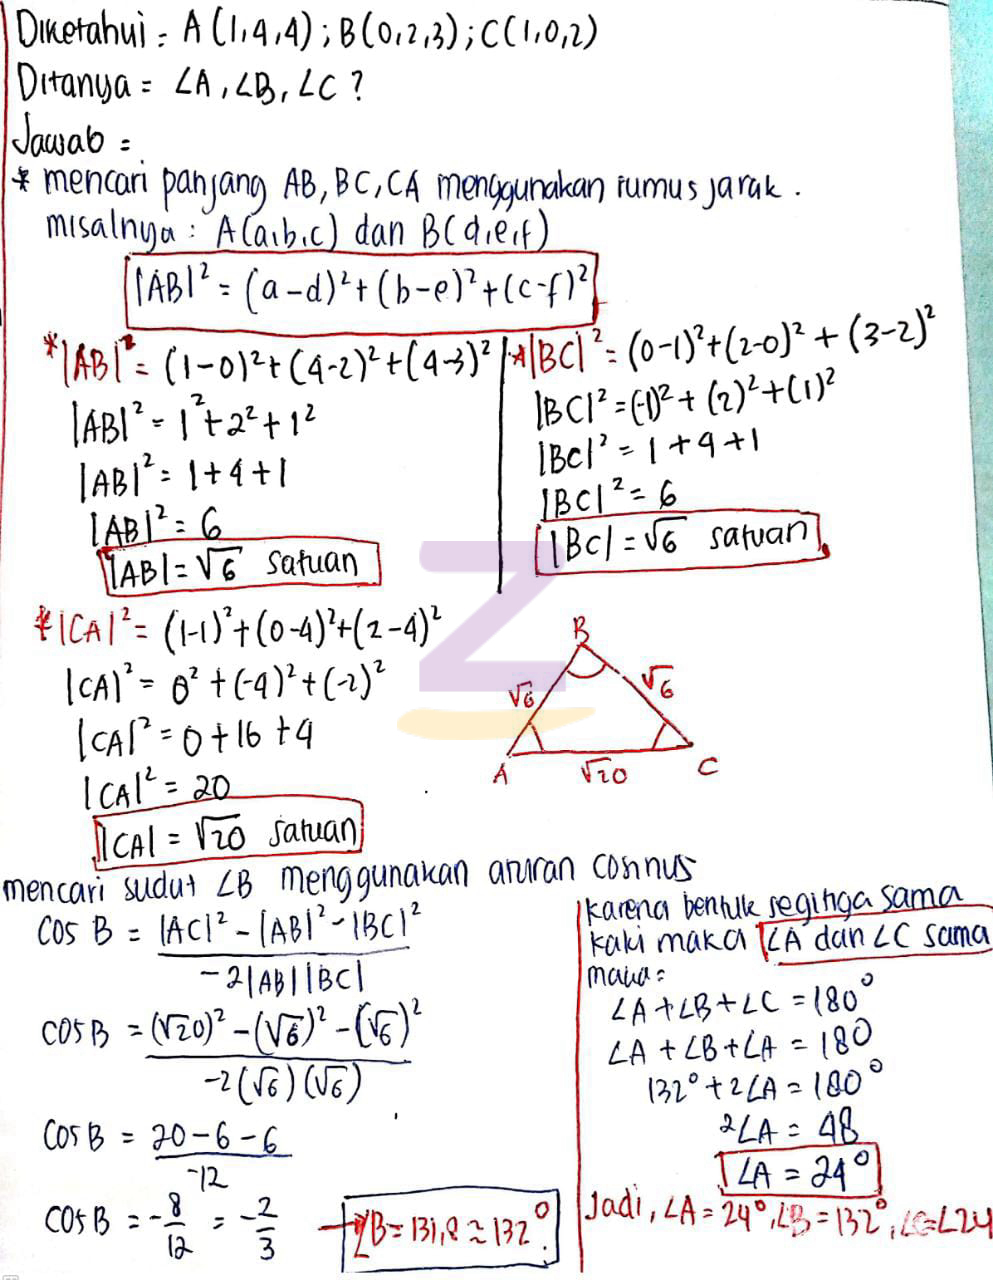 Diketahui : A(1,4,4) ; B(0,2,3) ; C(1,0,2)
Ditanya = ∠A, ∠B, ∠C ?
Jawab =
* mencari panjang AB, BC, CA menggunakan rumus jarak.
misalnya : A(a,b,c) dan B(d,e,f)
|AB|² = (a-d)² + (b-e)² + (c-f)²
*|AB|² = (1-0)² + (4-2)² + (4-3)²
|AB|² = 1² + 2² + 1²
|AB|² = 1 + 4 + 1
|AB|² = 6
|AB| = √6 satuan
*|BC|² = (0-1)² + (2-0)² + (3-2)²
|BC|² = (-1)² + (2)² + (1)²
|BC|² = 1 + 4 + 1
|BC|² = 6
|BC| = √6 satuan
*|CA|² = (1-1)² + (0-4)² + (2-4)²
|CA|² = 0² + (-4)² + (-2)²
|CA|² = 0 + 16 + 4
|CA|² = 20
|CA| = √20 satuan
B
√6 √6
A √20 C
Z
mencari sudut ∠B menggunakan aturan cosinus
cos B = |AC|² - |AB|² - |BC|²
-2|AB||BC|
cos B = (√20)² - (√6)² - (√6)²
-2(√6)(√6)
cos B = 20-6-6
-12
cos B = -8/12 = -2/3
→ ∠B = 131,8 ≈ 132°
karena bentuk segitiga sama
kaki maka ∠A dan ∠C sama
maka =
∠A + ∠B + ∠C = 180°
∠A + ∠B + ∠A = 180
132° + 2∠A = 180°
2∠A = 48
∠A = 24°
Jadi, ∠A = 24°, ∠B = 132°, ∠C = ∠24